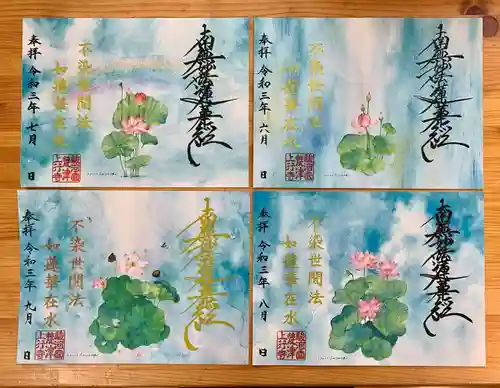 南無妙法蓮華経
不染世間法
如蓮華在水
奉拝 令和三年 六月 日
南無妙法蓮華経
不染世間法
如蓮華在水
奉拝 令和三年 七月 日
南無妙法蓮華経
不染世間法
如蓮華在水
奉拝 令和三年 八月 日
南無妙法蓮華経
不染世間法
如蓮華在水
奉拝 令和三年 九月 日